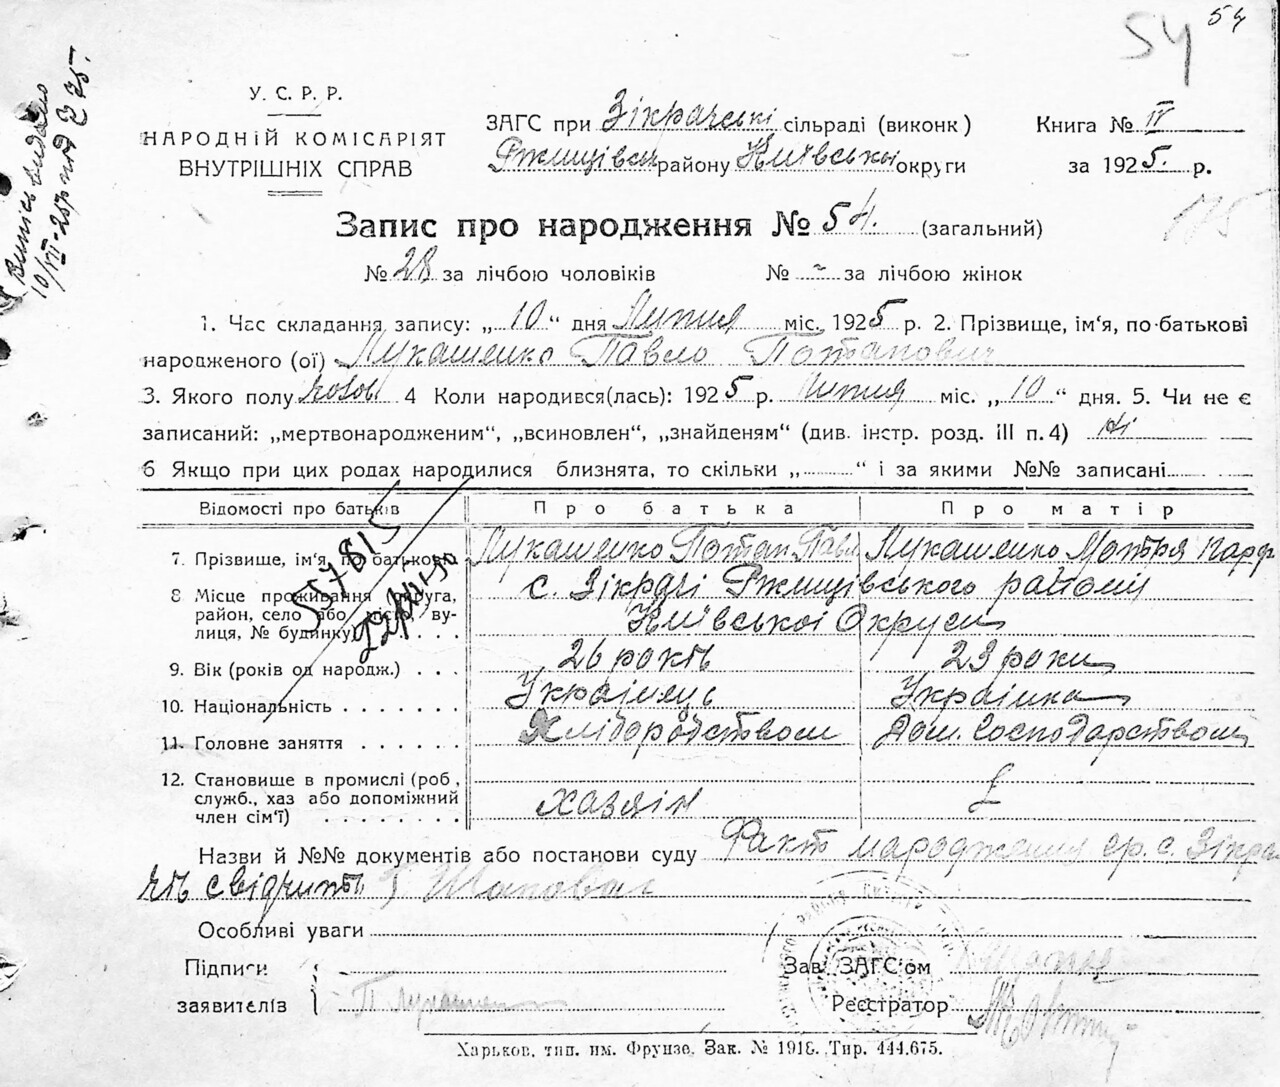 54
54
Витись видано
10/VII-25р
У. С. Р. Р.
НАРОДНІЙ КОМІСАРІЯТ
ВНУТРІШНІХ СПРАВ
ЗАГС при Зікрачські сільраді (виконк)
Ржищівськ району Київської округи
Книга № IV
за 1925. р.
175
Запис про народження № 54. (загальний)
№ 28 за лічбою чоловіків № - за лічбою жінок
1. Час складання запису: „10" дня Липня міс. 1925 р. 2. Прізвище, ім'я, по-батькові
народженого (ої) Лукашенко Павло Потапович
3. Якого полу 4 Коли народився(лась): 1925 р. Липня міс. „10" дня. 5. Чи не є
записаний: „мертвонародженим", „всиновлен", „знайденям" (див. інстр. розд. III п. 4) Ні
6 Якщо при цих родах народилися близнята, то скільки „ " і за якими №№ записані
Відомості про батьків Про батька Про матір
7. Прізвище, ім'я, по батькові Лукашенко Потап Павл Лукашенко Мотря Парф
8 Місце проживання (округа, с. Зікрачі Ржищівського району
район, село або місто, ву-
лиця, № будинку) Київської Округи
557815
9. Вік (років од народж.) 26 років 23 роки
10. Національність Українець Українка
11. Головне заняття Хліборобством Дом. Господарством
12. Становище в промислі (роб.,
служб., хаз або допоміжний хазяін
член сім'ї)
Назви й №№ документів або постанови суду Факт народження гр. с. Зікра
чів свідчить Г. Шаповал
Особливі уваги
Підписи
заявителів П Лукашенко
Зав. ЗАГС'ом
Реєстратор
Харьков, тип. им. Фрунзе, Зак. № 1918. Тир. 444.675.